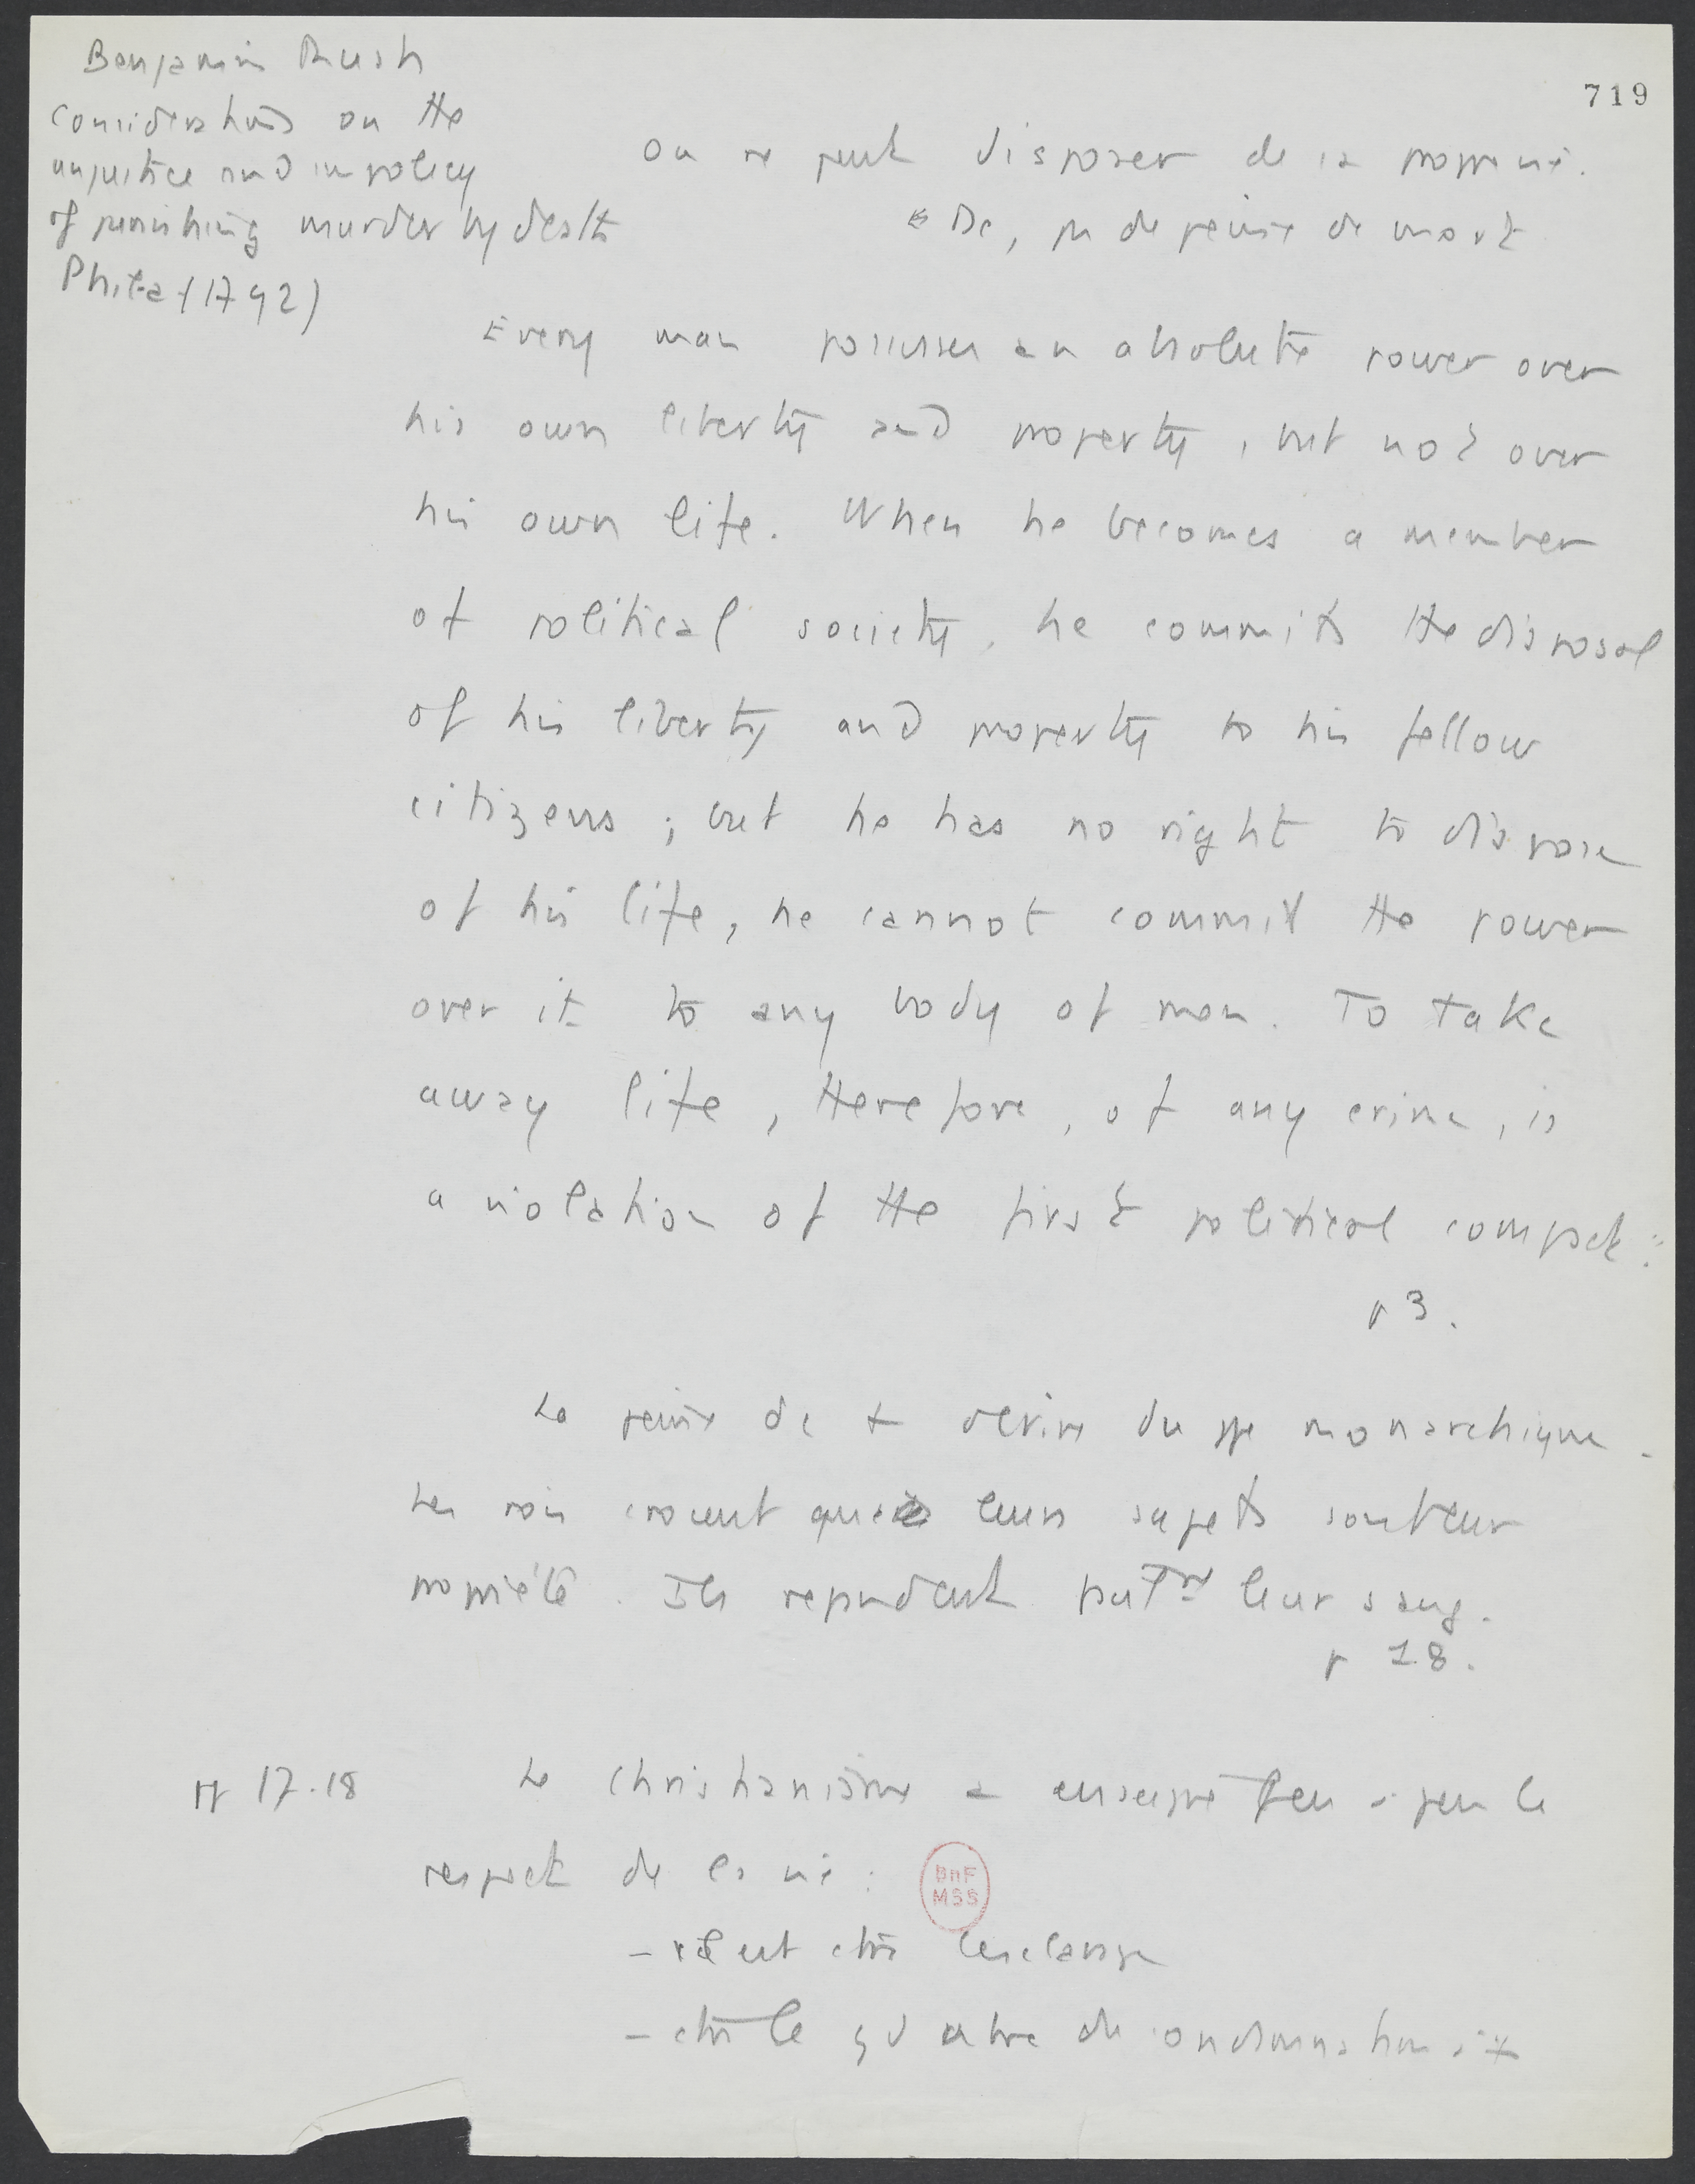 Benjamin Rush
Considerations on the
unjustice and impolicy
of punishing murder by death
Phila (1792)
719
On ne peut disposer de sa propre vie.
Dc, pas de peine de mort
Every man possesses an absolute power over
his own liberty and property, but not over
his own life. When he becomes a member
of political society, he commits the disposal
of his liberty and property to his fellow
citizens ; but he has no right to dispose
of his life, he cannot commit the power
over it to any body of men. To take
away life, therefore, of any crime, is
a violation of the first political compact.
p 3.
La peine de † dérive du monarchique.
Les rois croient que leurs sujets sont leur
propriété. Ils répandent leur sang.
p 18.
pp 17-18
Le christianisme a enseigné peu à peu le
respect de la vie :
BnF
MSS
- il est ctre l'esclavage
- ctre le de condamnation à †